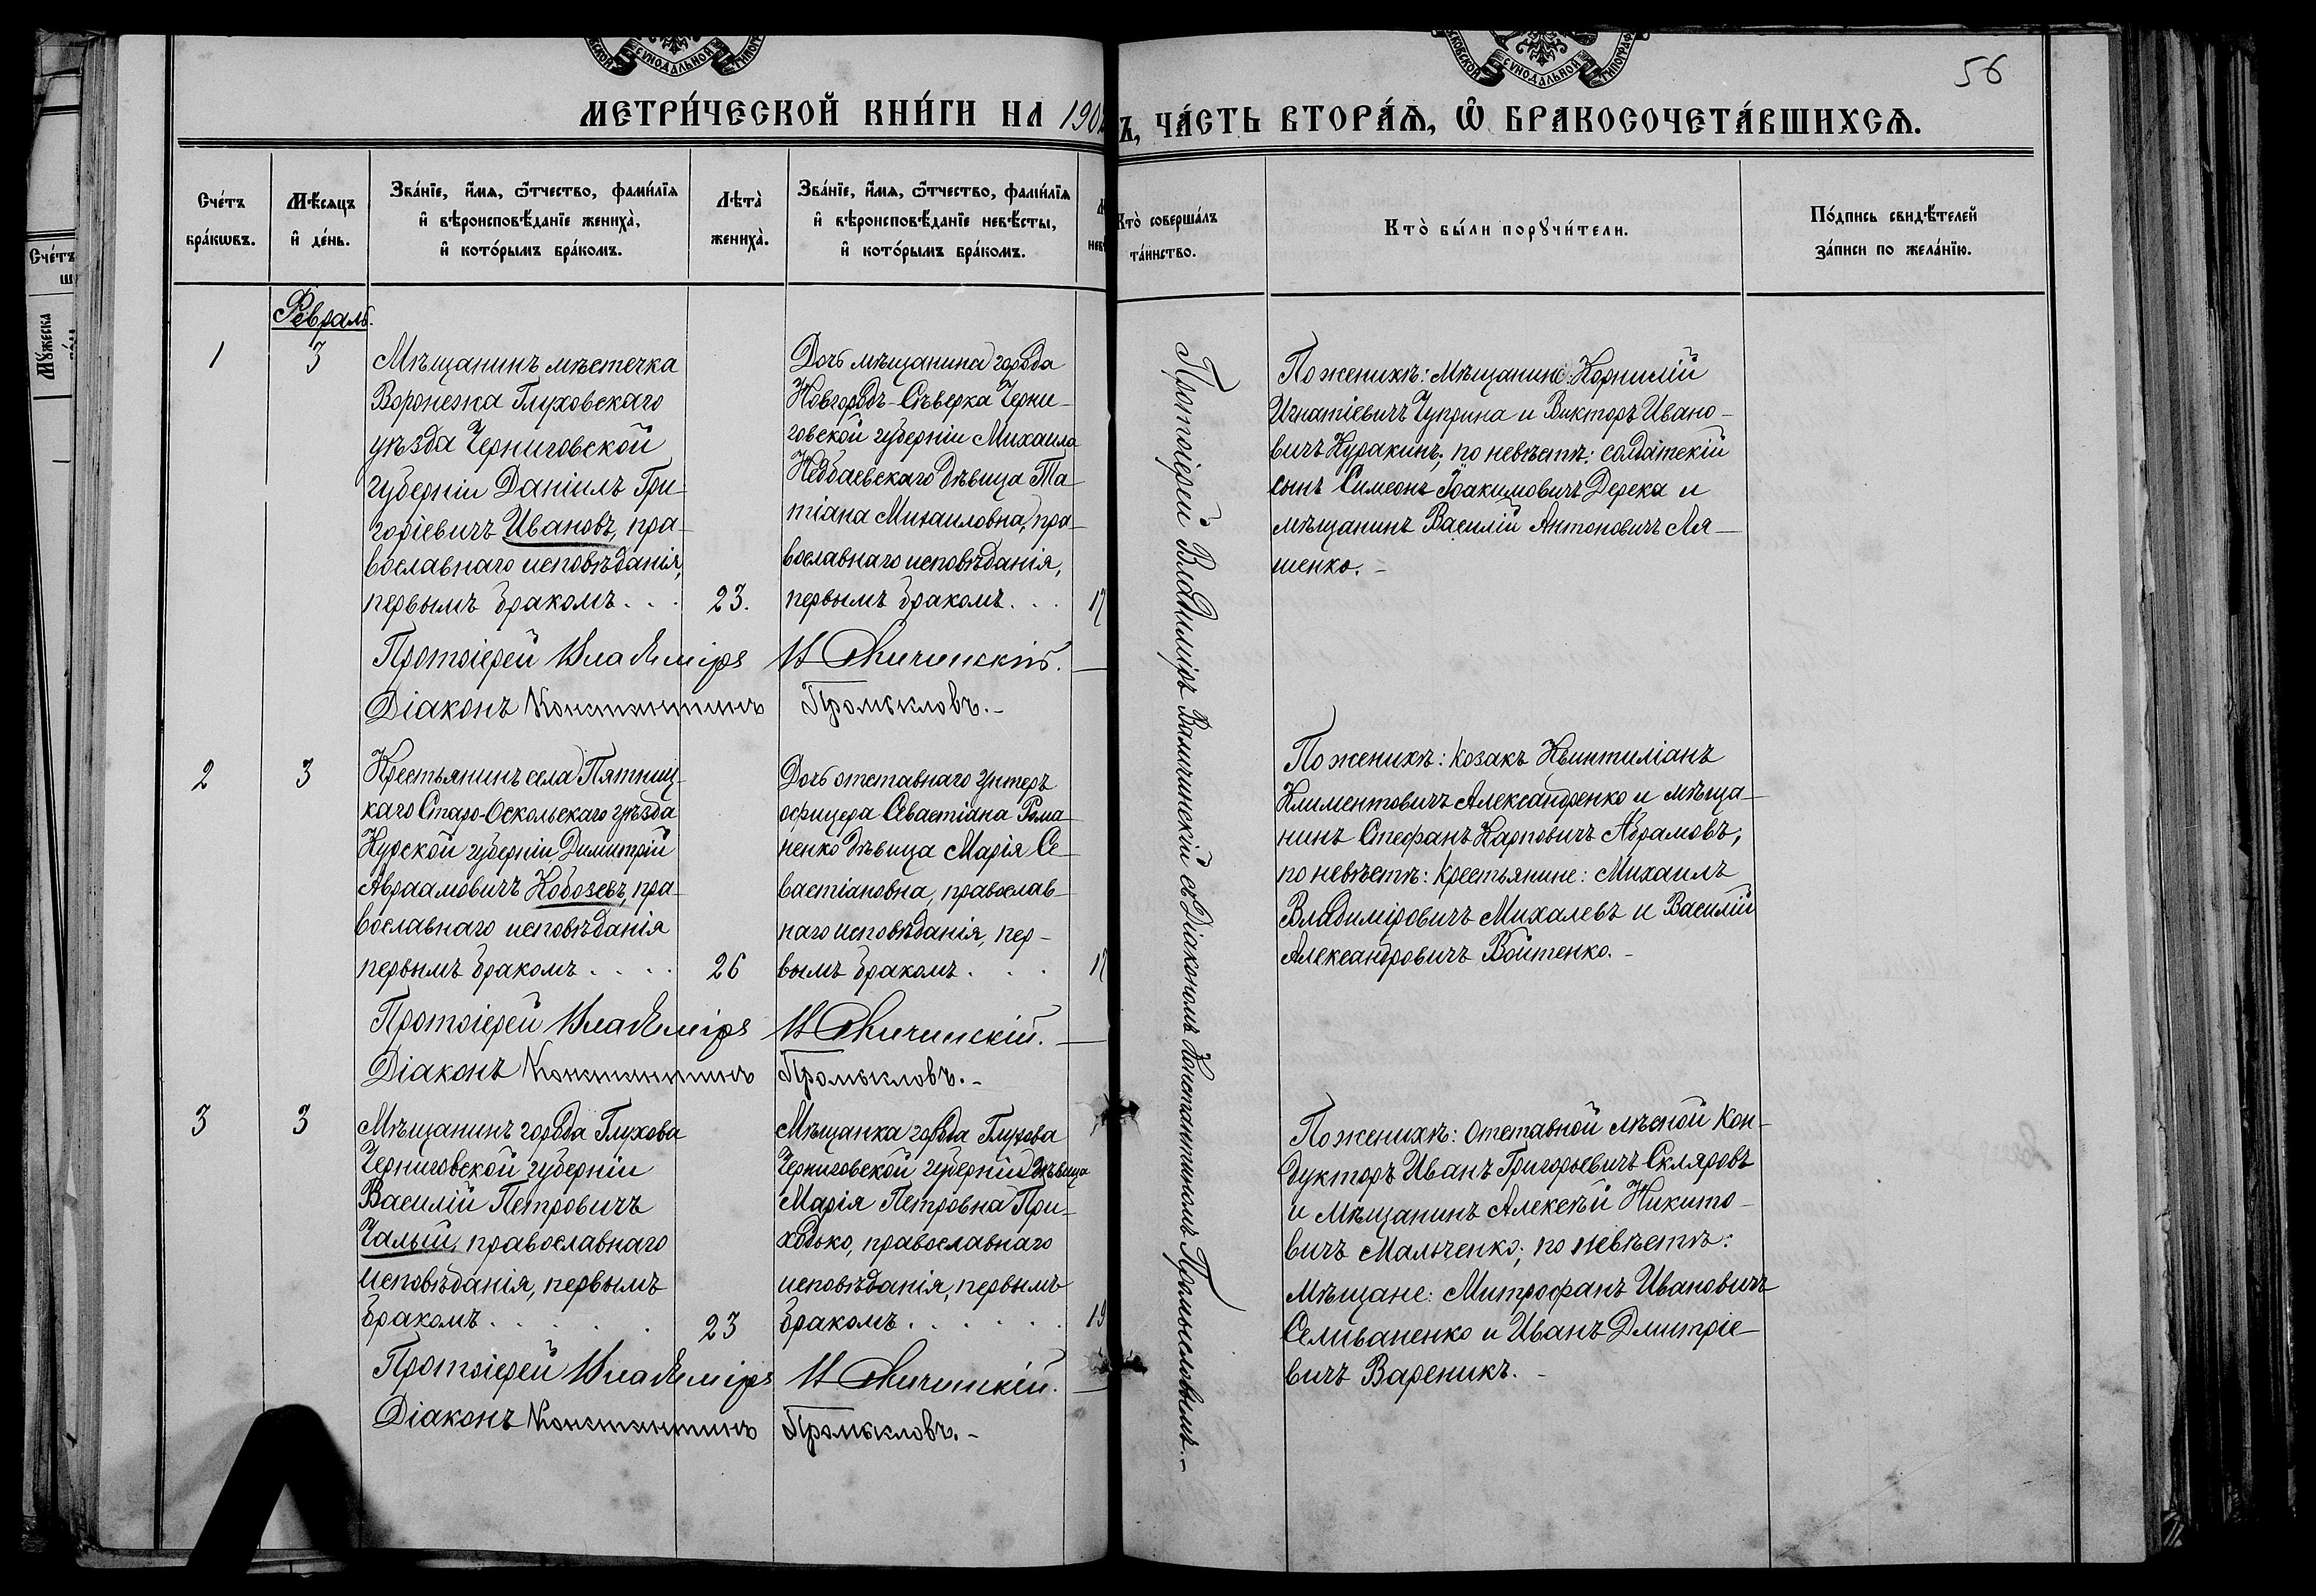 МОСКОВСКОЙ СѴНОДАЛЬНОЙ ТИПОГРАФ
56
МЕТРИ́ЧЕСКОЙ КНИ́ГИ НА 190
Ъ, ЧА́СТЬ ВТОРА́Ѧ, Ѡ҆ БРАКОСОЧЕТА́ВШИХСѦ.
Сче́тъ бра́кѡвъ.
Мѣ́сяцъ и҆ де́нь.
Зва́нїе, и҆́мѧ, ѻ҆́тчество, фами́лїѧ
и҆ вѣроисповѣ́данїе жениха̀,
и҆ кото́рымъ бра́комъ.
Лѣта̀ жениха̀.
Зва́нїе, и҆́мѧ, ѻ҆́тчество, фами́лїѧ
и҆ вѣроисповѣ́данїе невѣ́сты,
и҆ кото́рымъ бра́комъ.
Кто̀ соверша́лъ
та́инство.
Кто̀ бы́ли порꙋчи́тели.
По́дпись свидѣ́телей
за́писи по жела́нїю.
Февраль.
1
3
Мѣщанинъ мѣстечка
Воронежа Глуховскаго
уѣзда Черниговской
губерніи Даніилъ Гри-
горіевичъ Ивановъ, пра-
вославнаго исповѣданія,
первымъ бракомъ . . .
23.
Дочь мѣщанина города
Новгородъ-Сѣверка Черни-
говской губерніи Михаила
дѣвица Та-
тіана Михаиловна, пра-
вославнаго исповѣданія,
первымъ бракомъ . . .
17
Протоіерей Владиміръ
Діаконъ Константинъ Промысловъ.-
По женихѣ: мѣщанине: Корнилій
Игнатіевичъ Чуприна и Викторъ Ивано-
вичъ Куракинъ; по невѣстѣ: солдатскій
сынъ Симеонъ Іоакимовичъ Дерека и
мѣщанинъ Василій Антоновичъ Ля-
шенко. -
2
3
Крестьянинъ села Пятниц-
каго Старо-Оскольскаго уѣзда
Курской губерніи Димитрій
Авраамовичъ Кобозевъ, пра-
вославнаго исповѣданія
первымъ бракомъ . . . .
26
Дочь отставнаго унтеръ
офицера Севастіана Рома-
ненко дѣвица Марія Се-
вастіановна, православ-
наго исповѣданія, пер-
вымъ бракомъ . . .
17
Протоіерей Владиміръ
Діаконъ Константинъ Промысловъ.-
По женихѣ: козакъ Квинтиліанъ
Климентовичъ Александренко и мѣща-
нинъ Стефанъ Карповичъ Абрамовъ;
по невѣстѣ: крестьянине: Михаилъ
Владиміровичъ Михалевъ и Василій
Александровичъ Войтенко. -
3
3
Мѣщанинъ города Глухова
Черниговской губерніи
Василій Петровичъ
Чалый, православнаго
исповѣданія, первымъ
бракомъ . . . .
23
Мѣщанка города Глухова
Черниговской губерніи дѣвица
Марія Петровна При-
ходько, православнаго
исповѣданія, первымъ
бракомъ . . . . .
19
Протоіерей Владиміръ
Діаконъ Константинъ Промысловъ.-
По женихѣ: отставной лѣсной кон-
дукторъ Иванъ Григорьевичъ Скляровъ
и мѣщанинъ Алексѣй Никито-
вичъ Мальченко; по невѣстѣ:
мѣщане: Митрофанъ Ивановичъ
Селиваненко и Иванъ Дмитріе-
вичъ Вареникъ. -
Протоіерей Владиміръ съ Діакономъ Константиномъ Промысловымъ.-